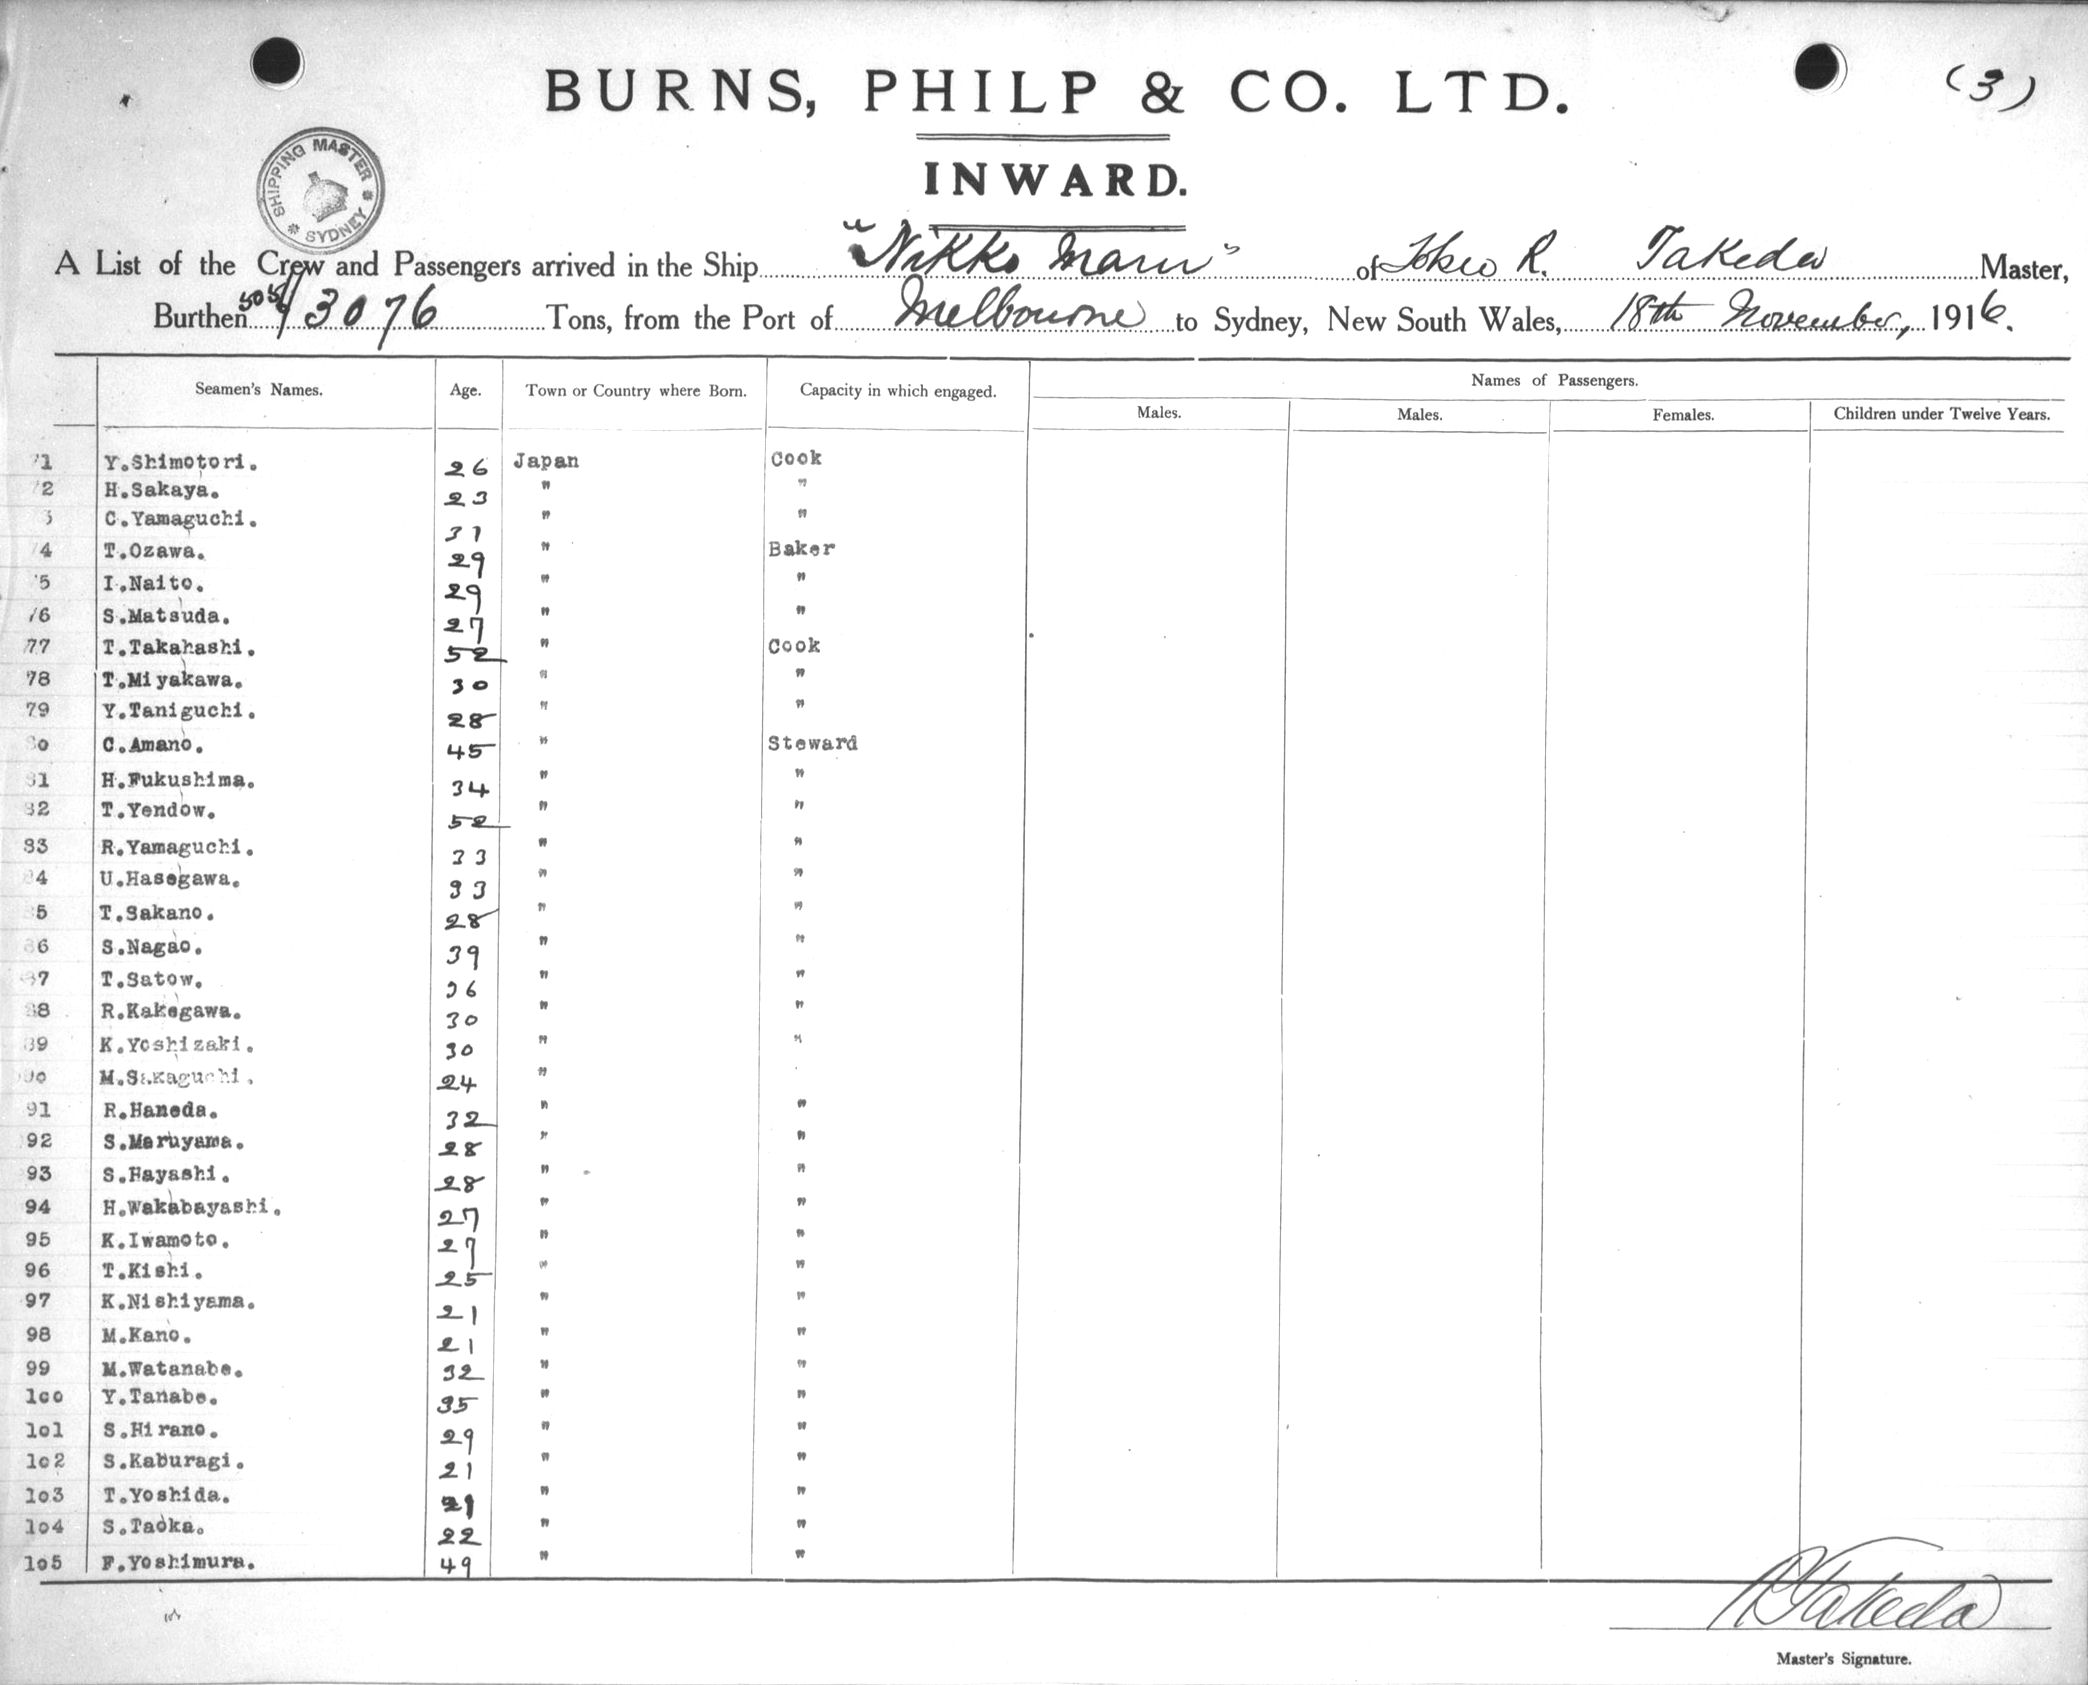 BURNS, PHILP & CO. LTD. (3)
INWARD.
SHIPPING MASTER SYDNEY
A List of the Crew and Passengers arrived in the Ship "Nikko Maru" of Tokio R. Takeda Master,
Burthen 505/3076 Tons, from the Port of Melbourne to Sydney, New South Wales, 18th November, 1916.
Seamen's Names. Age. Town or Country where Born. Capacity in which engaged. Names of Passengers.
Males. Males. Females. Children under Twelve Years.
71 Y.Shimotori. 26 Japan Cook
72 H.Sakaya. 23 " "
3 C.Yamaguchi. 31 " "
74 T.Ozawa. 29 " Baker
75 I.Naito. 29 " "
76 S.Matsuda. 27 " "
77 T.Takahashi. 52 " Cook
78 T.Miyakawa. 30 " "
79 Y.Taniguchi. 28 " "
80 C.Amano. 45 " Steward
81 H.Fukushima. 34 " "
82 T.Yendow. 52 " "
83 R.Yamaguchi. 33 " "
84 U.Hasegawa. 33 " "
85 T.Sakano. 28 " "
86 S.Nagao. 39 " "
87 T.Satow. 36 " "
88 R.Kakegawa. 30 " "
89 K.Yoshizaki. 30 " "
90 M.Sakaguchi. 24 "
91 R.Haneda. 32 " "
92 S.Maruyama. 28 " "
93 S.Hayashi. 28 " "
94 H.Wakabayashi. 27 " "
95 K.Iwamoto. 27 " "
96 T.Kishi. 25 " "
97 K.Nishiyama. 21 " "
98 M.Kano. 21 " "
99 M.Watanabe. 32 " "
100 Y.Tanabe. 35 " "
101 S.Hirano. 29 " "
102 S.Kaburagi. 21 " "
103 T.Yoshida. 21 " "
104 S.Taoka. 22 " "
105 F.Yoshimura. 49 " "
R Takeda
Master's Signature.